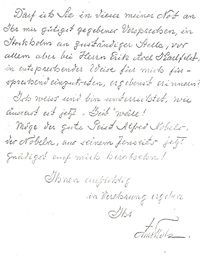 Darf ich Sie in dieser meiner Not an
Ihr mir gütigst gegebenes Versprechen, in
Stockholm an zuständiger Stelle, vor
allem aber bei Herrn Erik Axel Karlfeldt,
in entsprechender Weise für mich für-
sprechend einzutreten, ergebenst erinnern!
Ich weiss und bin unterrichtet, wie
schwer es jetzt
Möge der gute Geist Alfred Nobels,
der Nobeln, aus seinem Jenseits jetzt
gnädigst auf mich herabsehen!
Ihnen aufrichtig
in Verehrung ergeben
Ihr